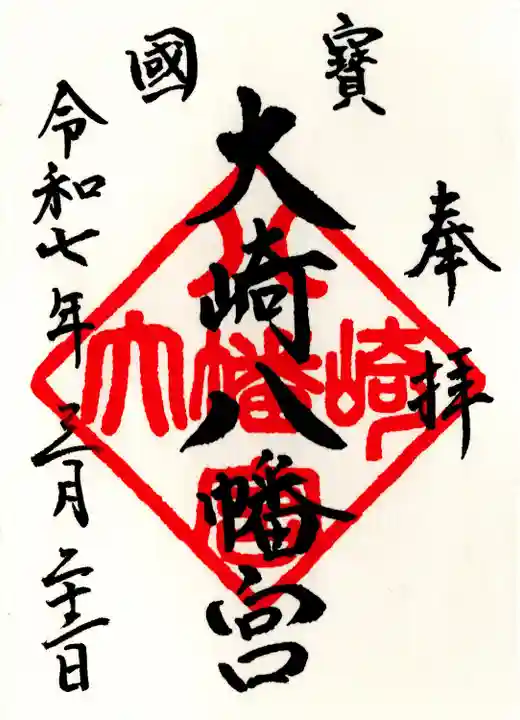 奉拝
國寶
大崎八幡宮
令和七年三月二十二日
大崎八幡宮